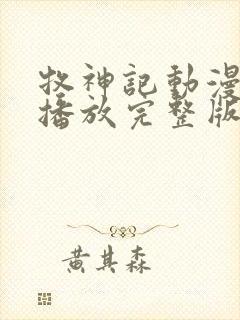 牧神記動漫
播放完整版
黄其森